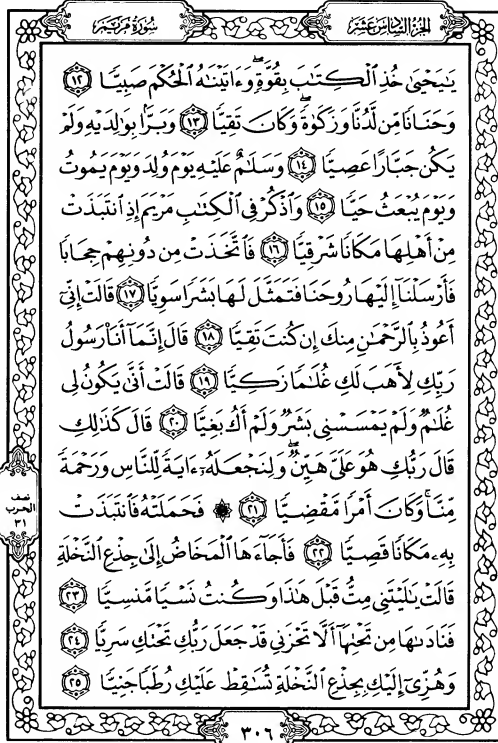 سُورَةُ مَرْيَمَ
الجُزْءُ السَّادِسَ عَشَرَ
يَٰيَحْيَىٰ خُذِ ٱلْكِتَٰبَ بِقُوَّةٍۖ وَءَاتَيْنَٰهُ ٱلْحُكْمَ صَبِيًّا ١٢
وَحَنَانًا مِّن لَّدُنَّا وَزَكَوٰةًۖ وَكَانَ تَقِيًّا ١٣ وَبَرًّۢا بِوَٰلِدَيْهِ وَلَمْ
يَكُن جَبَّارًا عَصِيًّا ١٤ وَسَلَٰمٌ عَلَيْهِ يَوْمَ وُلِدَ وَيَوْمَ يَمُوتُ
وَيَوْمَ يُبْعَثُ حَيًّا ١٥ وَٱذْكُرْ فِى ٱلْكِتَٰبِ مَرْيَمَ إِذِ ٱنتَبَذَتْ
مِنْ أَهْلِهَا مَكَانًا شَرْقِيًّا ١٦ فَٱتَّخَذَتْ مِن دُونِهِمْ حِجَابًا
فَأَرْسَلْنَآ إِلَيْهَا رُوحَنَا فَتَمَثَّلَ لَهَا بَشَرًا سَوِيًّا ١٧ قَالَتْ إِنِّىٓ
أَعُوذُ بِٱلرَّحْمَٰنِ مِنكَ إِن كُنتَ تَقِيًّا ١٨ قَالَ إِنَّمَآ أَنَا۠ رَسُولُ
رَبِّكِ لِأَهَبَ لَكِ غُلَٰمًا زَكِيًّا ١٩ قَالَتْ أَنَّىٰ يَكُونُ لِى
غُلَٰمٌ وَلَمْ يَمْسَسْنِى بَشَرٌ وَلَمْ أَكُ بَغِيًّا ٢٠ قَالَ كَذَٰلِكِ
قَالَ رَبُّكِ هُوَ عَلَىَّ هَيِّنٌۖ وَلِنَجْعَلَهُۥٓ ءَايَةً لِّلنَّاسِ وَرَحْمَةً
مِّنَّاۚ وَكَانَ أَمْرًا مَّقْضِيًّا ٢١ ۞ فَحَمَلَتْهُ فَٱنتَبَذَتْ
بِهِۦ مَكَانًا قَصِيًّا ٢٢ فَأَجَآءَهَا ٱلْمَخَاضُ إِلَىٰ جِذْعِ ٱلنَّخْلَةِ
قَالَتْ يَٰلَيْتَنِى مِتُّ قَبْلَ هَٰذَا وَكُنتُ نَسْيًا مَّنسِيًّا ٢٣
فَنَادَىٰهَا مِن تَحْتِهَآ أَلَّا تَحْزَنِى قَدْ جَعَلَ رَبُّكِ تَحْتَكِ سَرِيًّا ٢٤
وَهُزِّىٓ إِلَيْكِ بِجِذْعِ ٱلنَّخْلَةِ تُسَٰقِطْ عَلَيْكِ رُطَبًا جَنِيًّا ٢٥
نصف
الحزب
٣١
٣٠٦